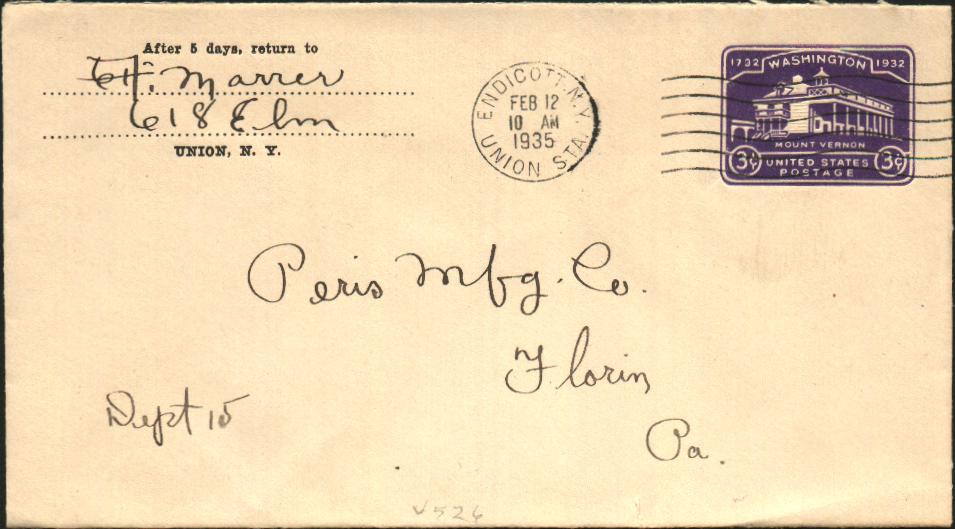 After 5 days, return to
H. Marrer
618 Elm
UNION, N. Y.
ENDICOTT, N.Y.
FEB 12
10 AM
1935
UNION STA.
1732 WASHINGTON 1932
MOUNT VERNON
3¢ UNITED STATES 3¢
POSTAGE
Peris Mfg. Co.
Florin
Pa.
Dept 15
V526